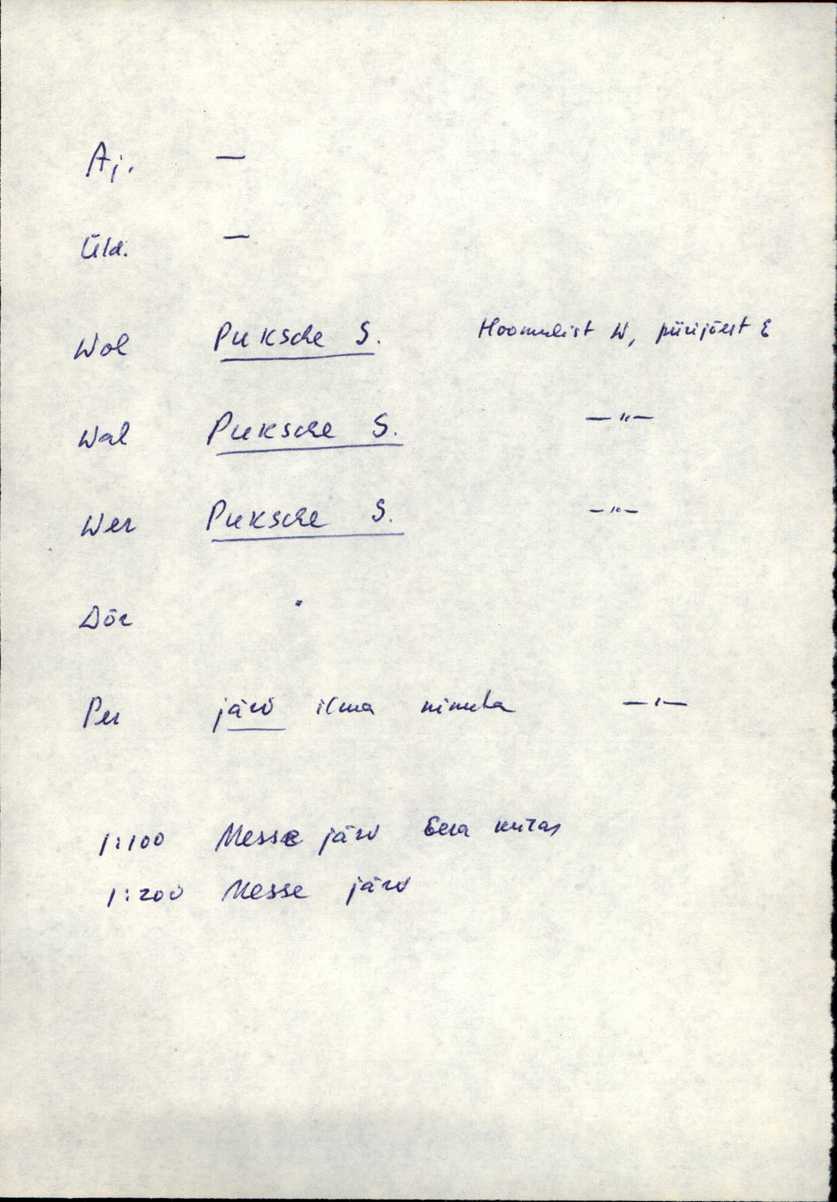 Aj. —
Üld. —
Wol Puksche S. Hoomulist W, piirijõest E
Wal Puksche S. —"—
Wer Puksche S. —"—
Dör
Per järv ilma nimeta —"—
1:100 Messe järv
1:200 Messe järv